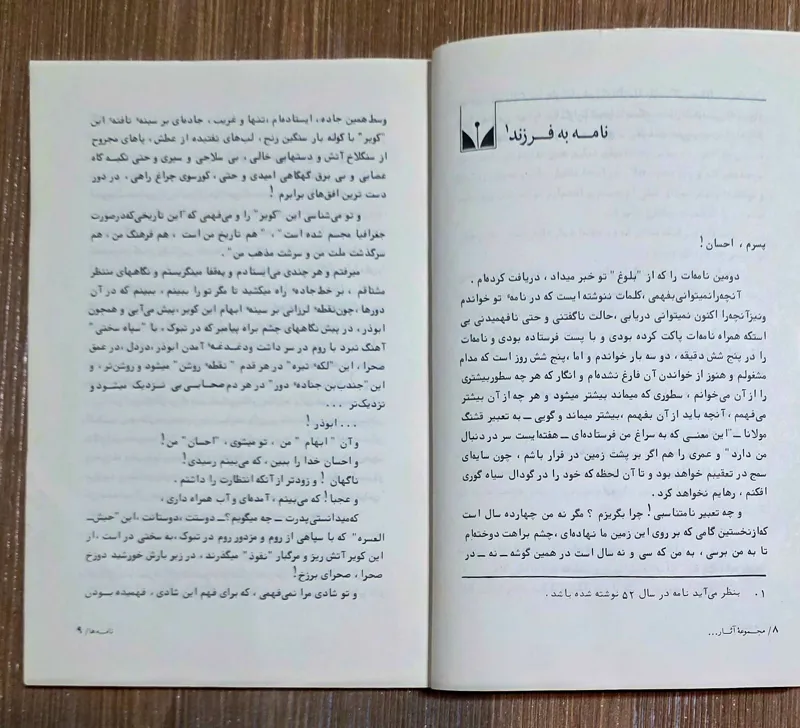 نامه به فرزند¹
پسرم ، احسان!
دومین نامه‌ات را که از "بلوغ" تو خبر میداد ، دریافت کرده‌ام .
آنچه را نمیتوانی بفهمی ، کلمات ننوشته ایست که در نامه تو خواندم
ونیز آنچه را اکنون نمیتوانی دریابی ، حالت ناگفتنی و حتی نافهمیدنی یی
استکه همراه نامه‌ات پاکت کرده بودی و با پست فرستاده بودی و نامه‌ات
را در پنج شش دقیقه ، دو سه بار خواندم و اما ، پنج شش روز است که مدام
مشغولم و هنوز از خواندن آن فارغ نشده‌ام و انگار که هر چه سطور بیشتری
را از آن می‌خوانم ، سطوری که میماند بیشتر میشود و هر چه از آن بیشتر
می‌فهمم ، آنچه باید از آن بفهمم ، بیشتر میماند و گویی ــ به تعبیر قشنگ
مولانا ــ "این معنـی که به سراغ من فرستاده‌ای ــ هفته‌ایست سر در دنبال
من دارد" و عمری را هم اگر بر پشت زمین در فرار باشم ، چون سایه‌ای
سمج در تعقیبم خواهد بود و تا آن لحظه که خود را در گودال سیاه گوری
افکنم ، رهایم نخواهد کرد .
و چه تعبیر نامتناسبی! چرا بگریزم ؟ مگر نه من چهارده سال است
که‌از نخستین گامی که بر روی این زمین ما نهاده‌ای ، چشم براهت دوخته‌ام
تا به من برسی ، به من که سی و نه سال است در همین گوشه ــ نه ــ در
۱ . بنظر می‌آید نامه در سال ۵۲ نوشته شده باشد .
۸/ مجموعهٔ آثار...
وسط همین جاده ، ایستاده‌ام ، تنها و غریب ، جاده‌ای بر سینه تافته این
"کویر" با کوله بار سنگین رنج ، لب‌های تفتیده از عطش ، پاهای مجروح
از سنگلاخ آتش و دستهایی خالی ، بی سلاحی و سپری و حتی تکیه گاه
عصایی و بی برق گهگاهی امیدی و حتی ، کورسوی چراغ راهی ، در دور
دست ترین افق‌های برابرم !
و تو می‌شناسی این "کویر" را و می‌فهمی که "این تاریخی‌که‌درصورت
جغرافیا مجسم شده است" ، "هم تاریخ من است ، هم فرهنگ من ، هم
سرگذشت ملت من و سرشت مذهب من" .
میرفتم و هر چندی می‌ایستادم و به‌قفا مینگریستم و نگاههای منتظر
مشتاقم ، بر خط جاده راه میکشید تا مگر تو را ببینم ، ببینم که در آن
دورها ، چون‌نقطه لرزانی بر سینه ابهام این کویر ، پیش می‌آیی و همچون
ابوذر ، در پیش نگاههای چشم براه پیامبر که در تبوک ، با "سپاه سختی"
آهنگ نبرد با روم در سر داشت ودغدغه آمدن ابوذر ، دردل ، در عمق
صحرا ، این "لکه تیره" در هر قدم "نقطه روشن" میشود و روشن‌تر ، و
این "جندب‌بن جناده دور" در هر دم صحابـی بی نزدیک میشود و
نزدیک‌تر ...
... ابوذر !
و آن "ابهام" من ، تو میشوی ، "احسان" من!
و احسان خدا را ببین ، که می‌بینم رسیدی!
ناگهان ! و زودتر از آنکه انتظارت را داشتم .
و عجبا ! که می‌بینم ، آمده‌ای و آب همراه داری ،
که‌میدانستی پدرت ــ چه میگویم؟ ــ دوستت ، دوستانت ، این "جیش‌ــ
العسره" که با سپاهی از روم و مزدور روم در تبوک ، به سختی در است ، از
این کویر آتش ریز و مرگبار "نفوذ" میگذرند ، در زیر بارش خورشید دوزخ
صحرا ، صحرای برزخ!
و تو شادی مرا نمی‌فهمی ، که برای فهم این شادی ، فهمیده بـودن
نامه‌ها/ ۹